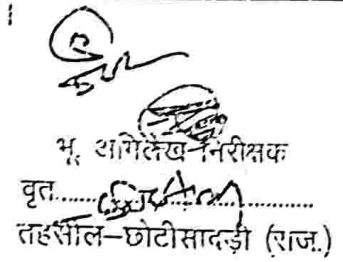 भू. अभिलेख निरीक्षक
वृत..............................
तहसील-छोटीसादड़ी (राज.)